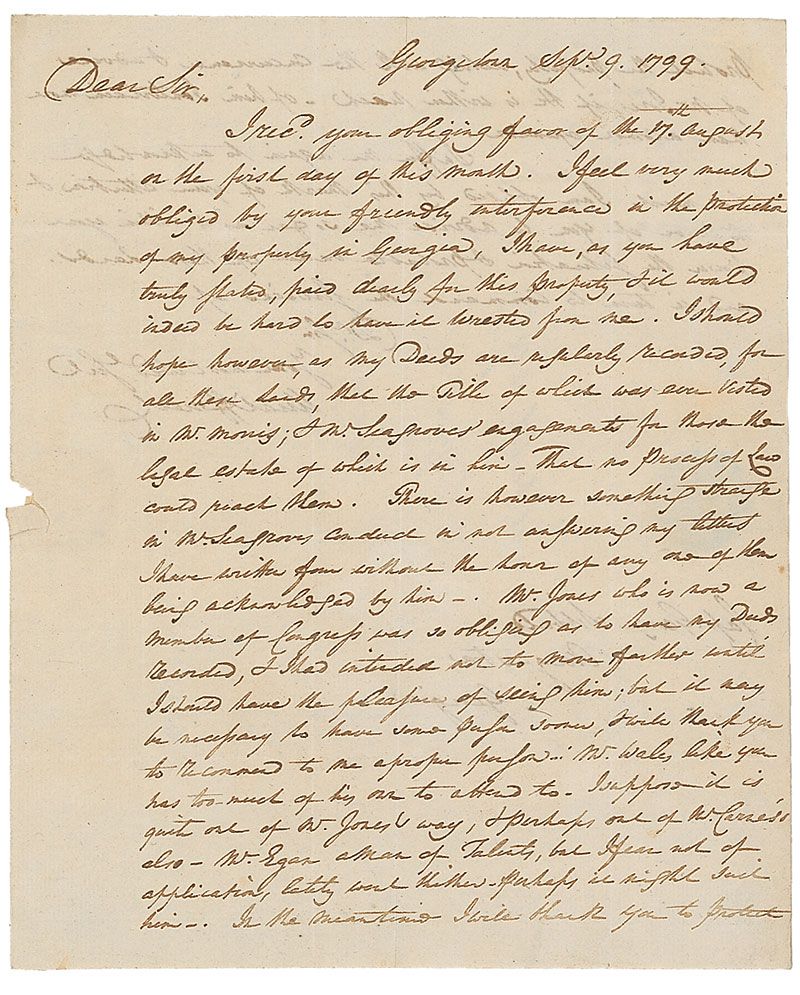 Georgetown Sepr. 9. 1799.
Dear Sir,
I recd. your obliging favor of the 17.th August
on the first day of this month. I feel very much
obliged by your friendly interference in the protection
of my property in Georgia, I have, as you have
truly stated, paid dearly for this property, & it would
indeed be hard to have it wrested from me. I should
hope however, as my Deeds are regularly recorded, for
all these Lands, that the Title of which was ever Vested
in Mr. Morris; & Mr. Seagroves' engagements for those the
legal estate of which is in him - That no Process of Law
could reach them. There is however something strange
in Mr. Seagroves conduct in not answering my letters
I have written four without the honor of any one of them
being acknowledged by him -. Mr. Jones who is now a
member of Congress was so obliging as to have my Deeds
recorded, & I had intended not to move farther until
I should have the pleasure of seeing him; but it may
be necessary to have some Person sooner, I will thank you
to recommend to me a proper person -. Mr. Wales like you
has too much of his own to attend to - I suppose it is
quite out of Mr. Jones's way, & perhaps out of Mr. Carnes's
also - Mr. Egan a Man of Talents, but I fear not of
application, lately went thither - Perhaps it might suit
him -. In the meantime I will thank you to protect